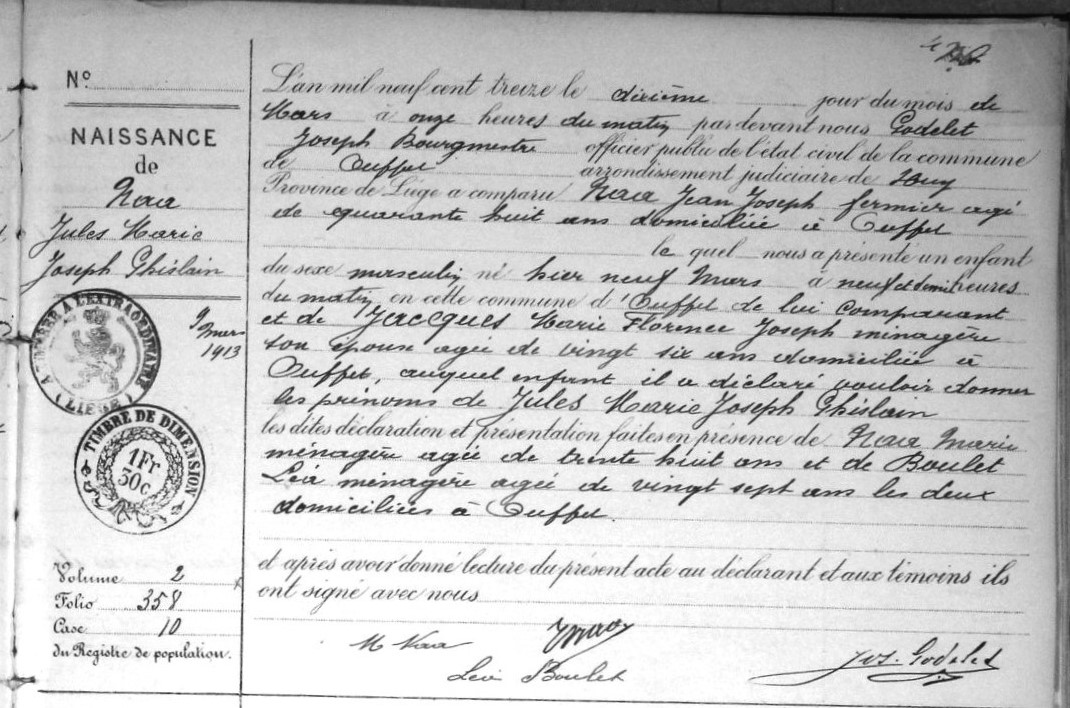 Nº
NAISSANCE
de
Naa
Jules Marie
Joseph Ghislain
9 mars
1913
TIMBRE A L'EXTRAORDINAIRE
(LIÉGE)
TIMBRE DE DIMENSION
1Fr
30c
Volume 2
Folio 358
Case 10
du Registre de population.
L'an mil neuf cent treize le dixième jour du mois de
Mars à onze heures du matin par devant nous Godelet
Joseph Bourgmestre officier public de l'état civil de la commune
de Ouffet arrondissement judiciaire de Huy
Province de Liége a comparu Naa Jean Joseph fermier agé
de quarante huit ans domiciliée à Ouffet
le quel nous a présenté un enfant
du sexe masculin né hier neuf Mars à neuf et demi heures
du matin en cette commune d'Ouffet de lui comparant
et de Jacques Marie Florence Joseph ménagère
son épouse agée de vingt six ans domiciliée à
Ouffet, auquel enfant il a déclaré vouloir donner
les prénoms de Jules Marie Joseph Ghislain
les dites déclaration et présentation faites en présence de Naa Marie
ménagère agée de trente huit ans et de Boulet
Léa ménagère agée de vingt sept ans les deux
domiciliées à Ouffet.
et après avoir donné lecture du présent acte au déclarant et aux témoins ils
ont signé avec nous
M Naa
Léa Boulet
Jos. Godelet